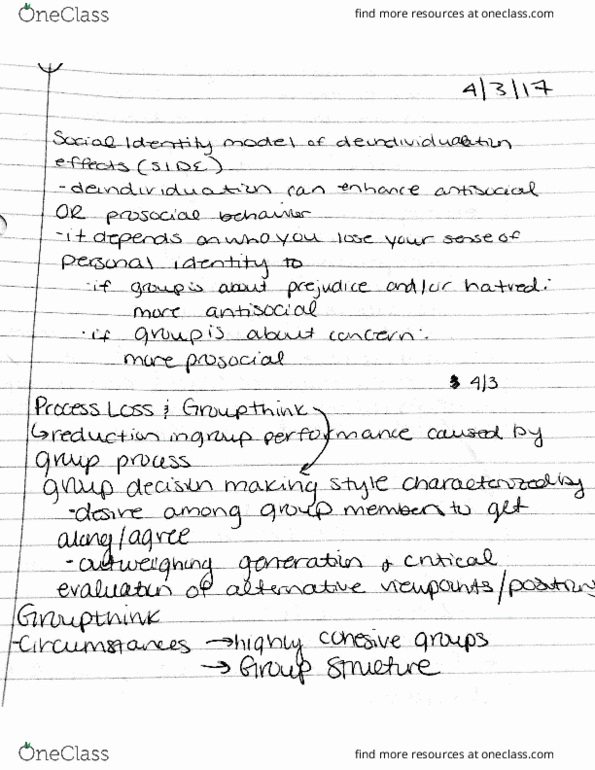 OneClass
find more resources at oneclass.com
4/3/17
Social Identity model of deindividuation
effects (SIDE)
- deindividuation can enhance antisocial
OR prosocial behavior
- it depends on who you lose your sense of
personal identity to
· if group is about prejudice and/or hatred:
more antisocial
· if group is about concern:
more prosocial
4/3
Process Loss & Groupthink
↳ reduction in group performance caused by
group process
group decision making style characterized by
- desire among group member to get
along/agree
- outweighing generation & critical
evaluation of alternative viewpoints/positions
Groupthink
- Circumstances → highly cohesive groups
→ Group Structure
OneClass
find more resources at oneclass.com